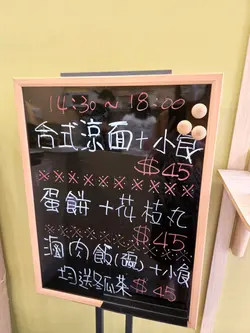 14:30～18:00
台式涼面+小食
$45
蛋餅+花枝丸
$45
滷肉飯(塩)+小食
均送冬瓜茶 $45